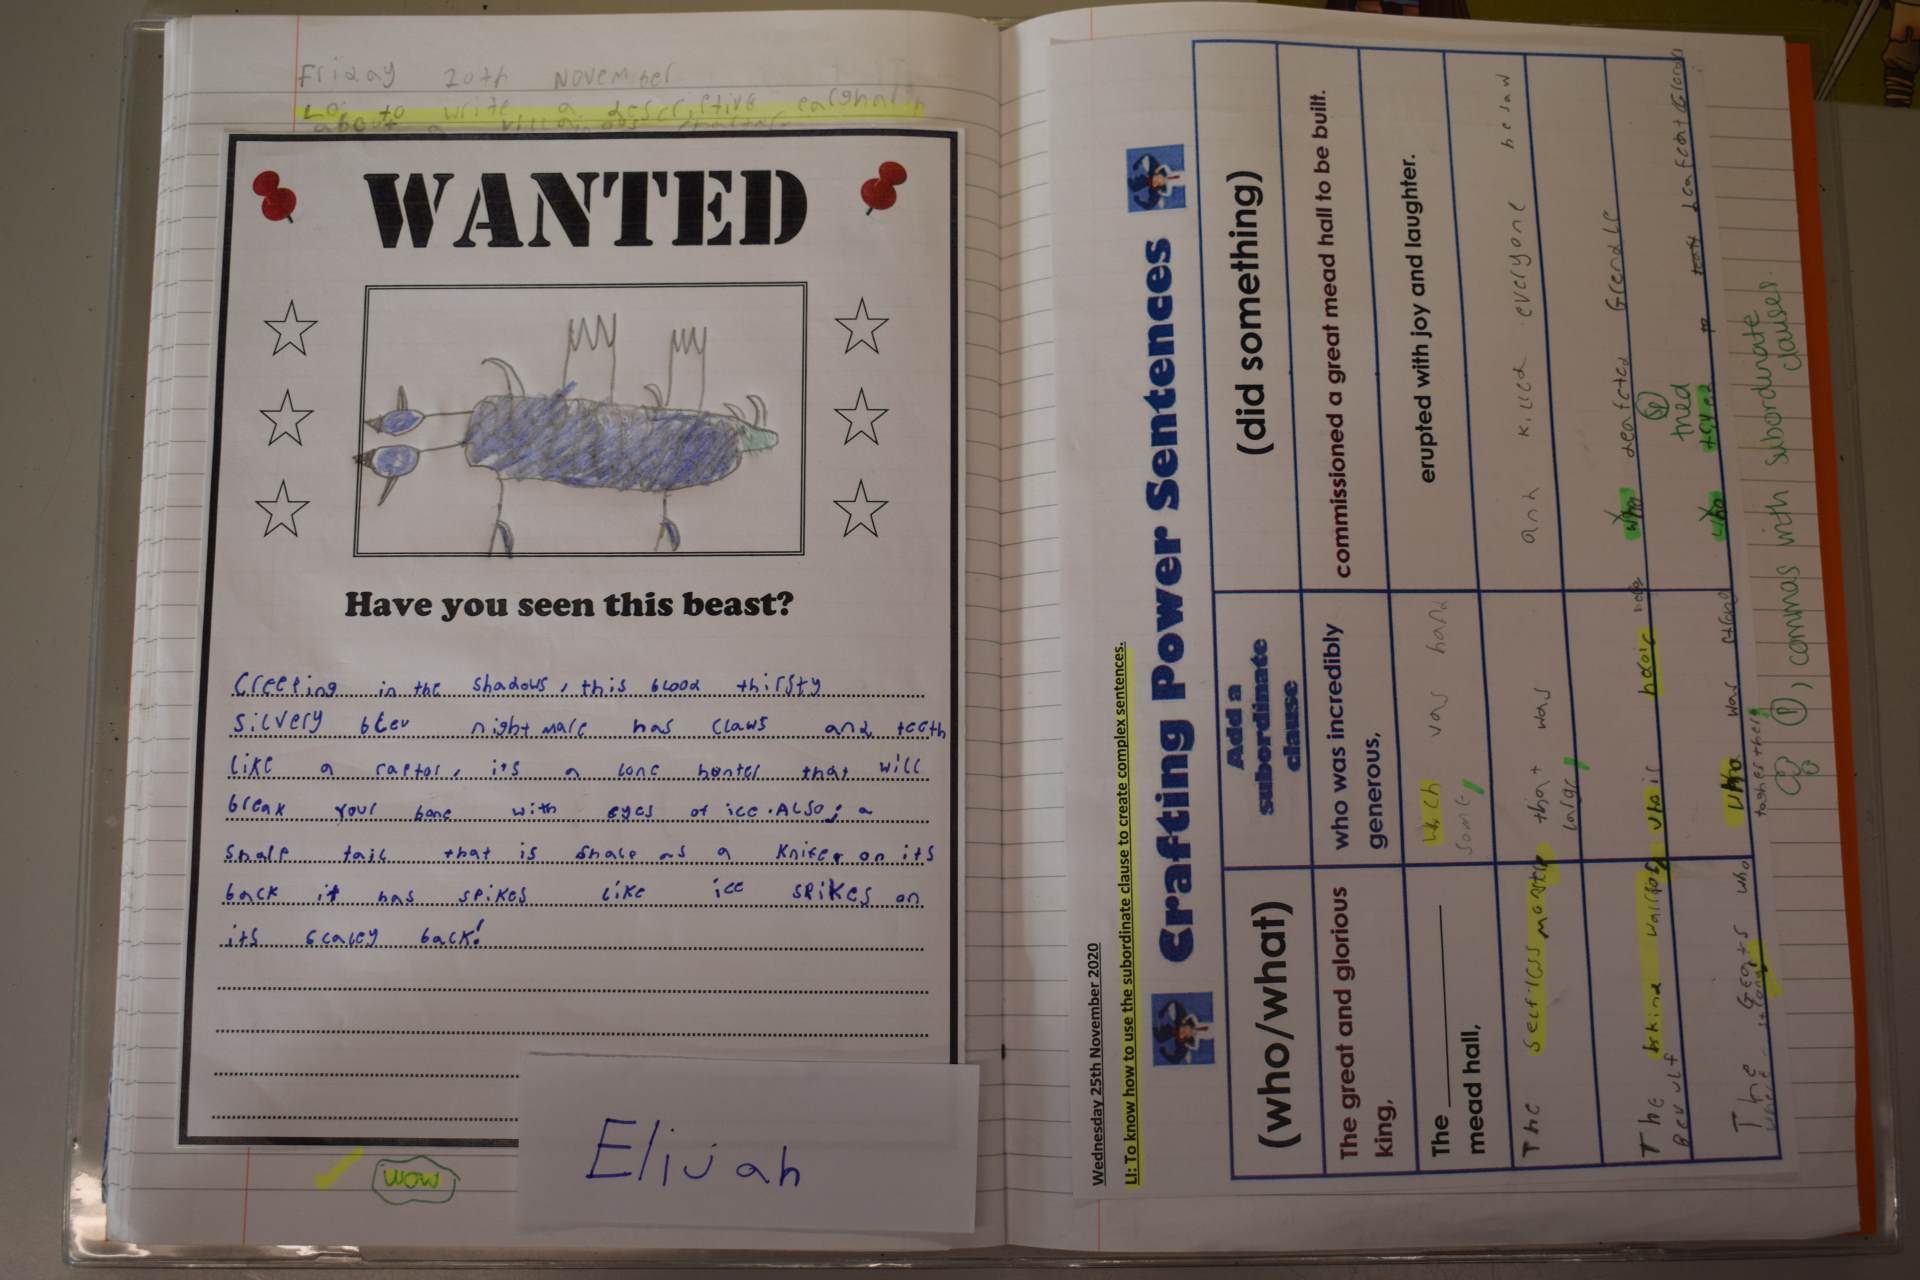 Friday 20th November
Lo: to write a descriptive
about a
WANTED
Have you seen this beast?
Creeping in the shadows, this blood thirsty
silvery bleu nightmare has claws and teeth
like a raptor, its a lone honter that will
break your bone with eyes of ice. ALSO; a
sharp tail that is sharp as a on its
back it has spikes like ice spikes on
its scaley back!
WOW
Elijah
Wednesday 25th November 2020
LI: To know how to use the subordinate clause to create complex sentences.
Crafting Power Sentences
(who/what)
Add a subordinate clause
(did something)
The great and glorious king,
who was incredibly generous,
commissioned a great mead hall to be built.
The ________ mead hall,
which was hand some,
erupted with joy and laughter.
The selfless
that was
and killed everyone he saw
The
who defeated Grendle
The Geats who
who was strong together,
who
tried
sp
P , commas with subordinate clauses.